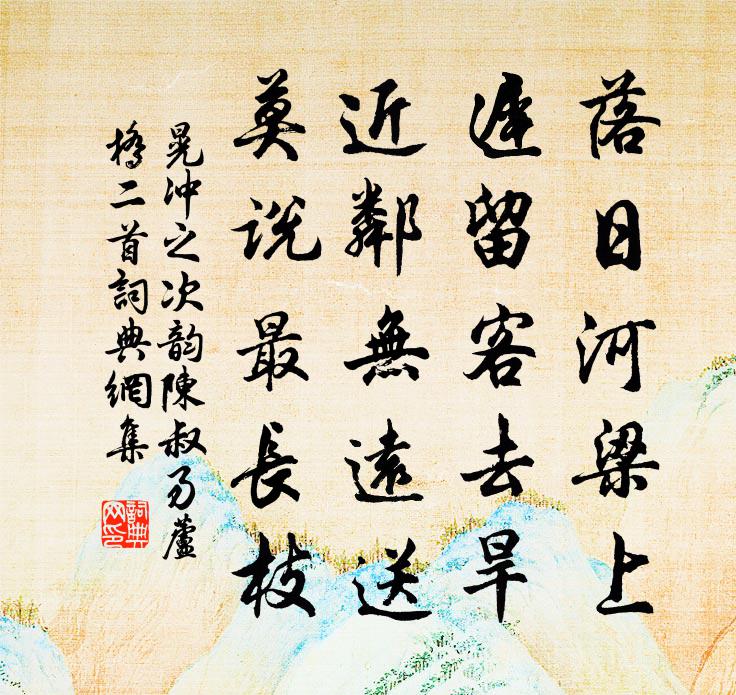 落日河梁上
遲留客去旱
近鄰無遠送
莫說最長枝
晁冲之次韵陳叔易蘆
橋二首詞典網集
詞典
网印